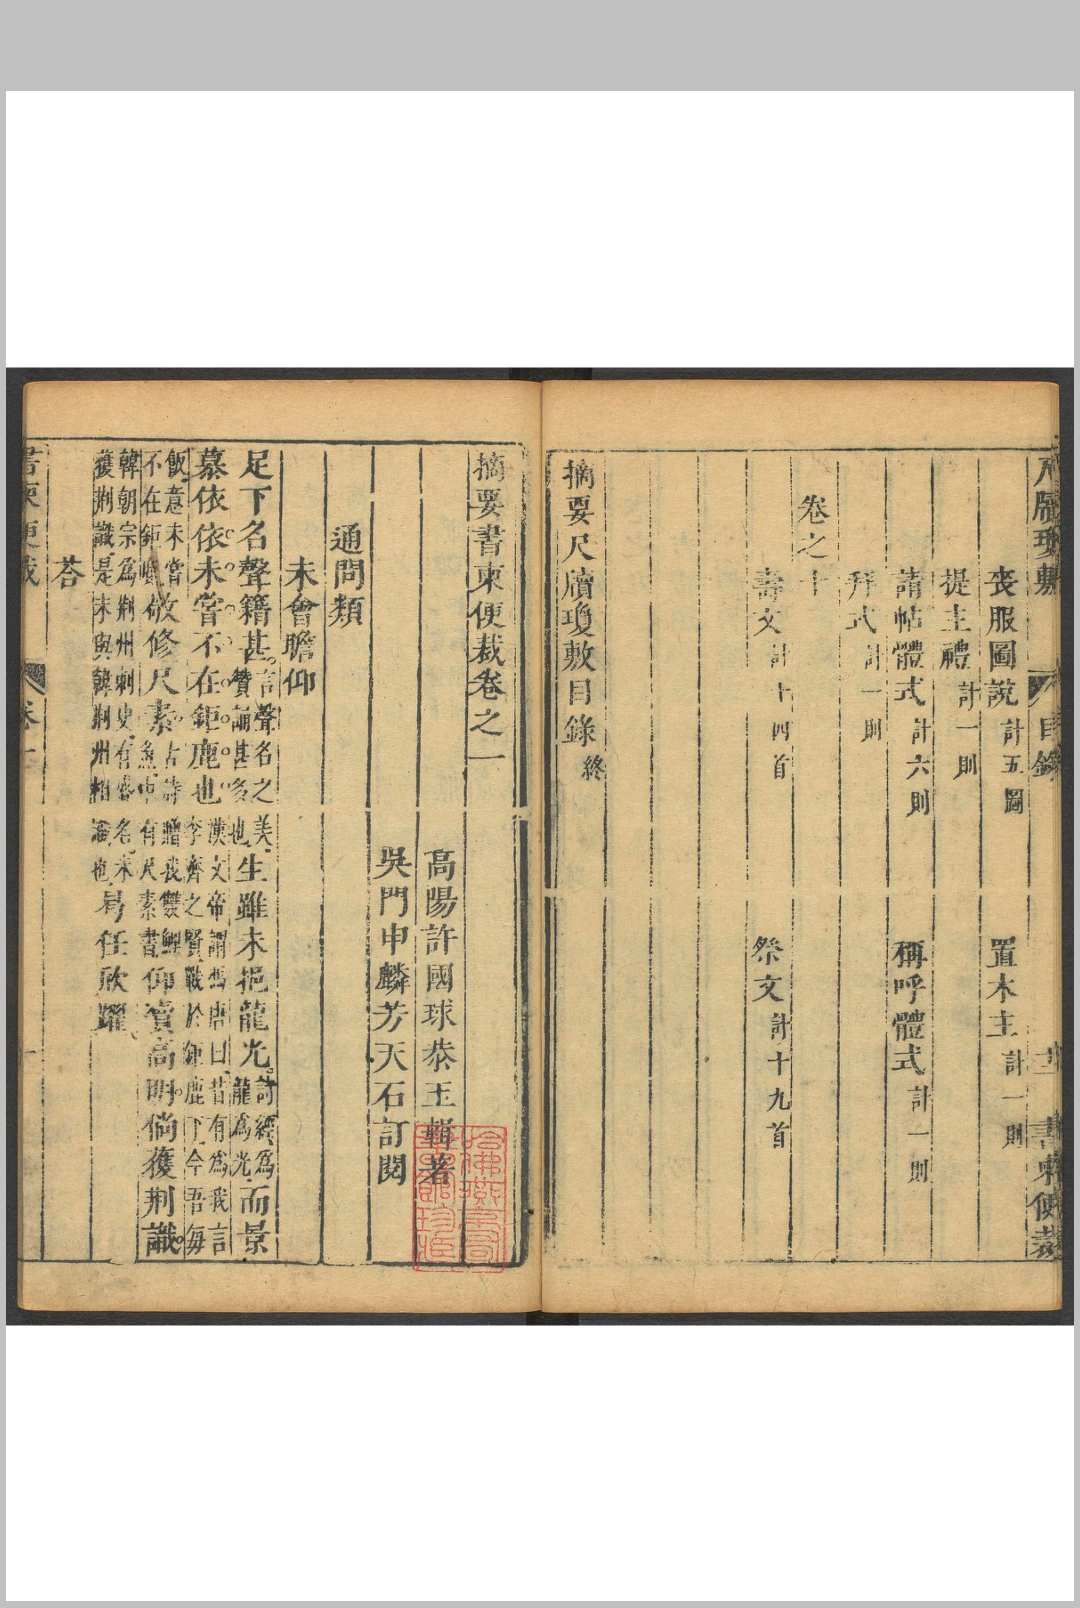 喪服圖說 計五圖 置木主 計一則
提主禮 計一則
請帖體式 計六則 稱呼體式 計一則
拜式 計一則
卷之十
壽文 計十四首 祭文 計十九首
摘要尺牘瓊敷目錄 終
摘要書柬便裁卷之一
高陽許國球恭玉輯著
吳門申麟芳天石訂閱
通問類
未會瞻仰
足下名聲籍甚 言聲名之美 贊誦甚多也 生雖未挹龍光 詩經為龍為光 而景
慕依依未嘗不在鉅鹿也 漢文帝謂馮唐曰昔有為我言李齊之賢戰於鉅鹿下今吾每
飯意未嘗不在鉅鹿 敬修尺素 古詩贈我雙鯉魚中有尺素書 仰瀆高明倘獲荊識
韓朝宗為荊州刺史有盛名未獲荊識是未與韓荊州相識也 曷任欣躍
答